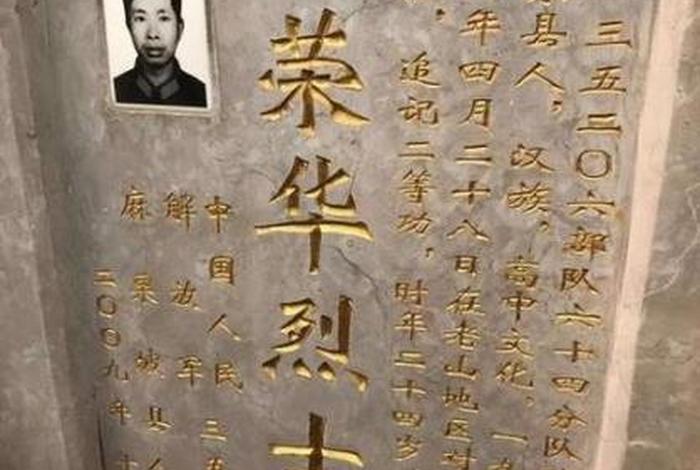 三五二〇六部队六十四分队
县人，汉族，高中文化，一九
年四月二十八日在老山地区对
，追记二等功，时年二十四岁
荣华烈士
中国人民三五
解放军
麻栗坡县人
二〇〇九年十